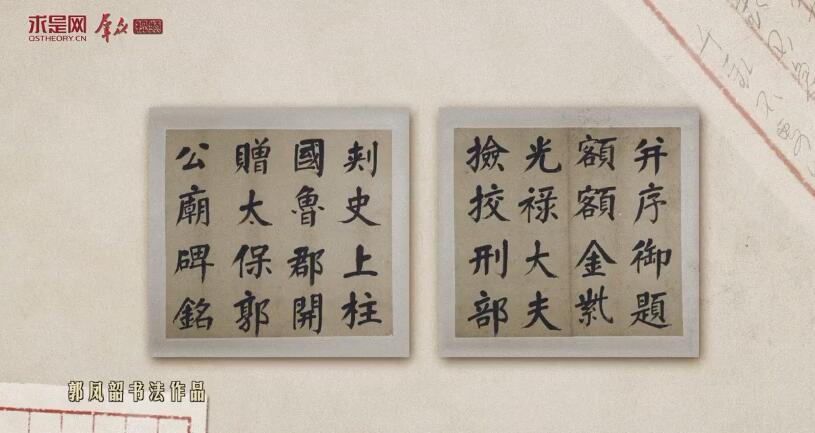 求是网
QSTHEORY.CN
刾史上柱
國魯郡開
贈太保郭
公廟碑銘
并序御題
額額金紫
光祿大夫
撿挍刑部
郭凤韶书法作品